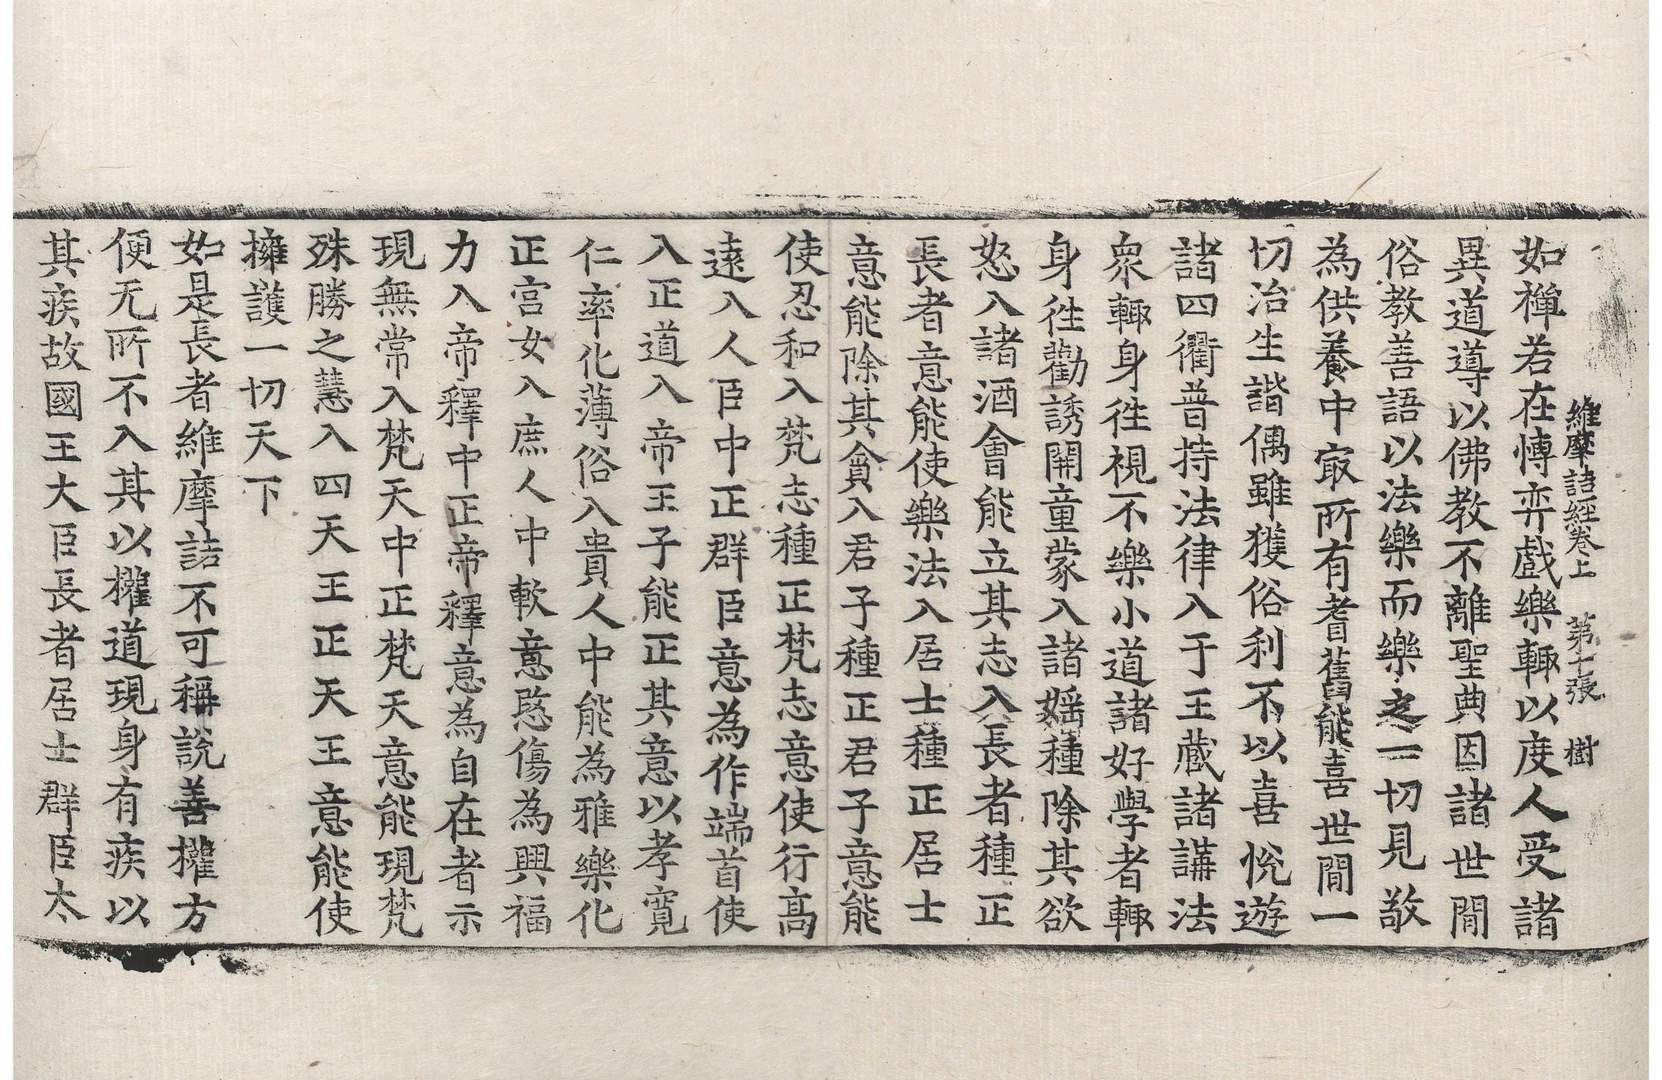 維摩詰經卷上 第七張 樹
如禪若在博弈戲樂輒以度人受諸
異道導以佛教不離聖典因諸世間
俗教善語以法樂而樂之一切見敬
為供養中㝡所有耆舊能喜世間一
切治生諧偶雖獲俗利不以喜悅遊
諸四衢普持法律入于王藏諸講法
衆輒身徃視不樂小道諸好學者輒
身徃勸誘開童蒙入諸婬種除其欲
怒入諸酒會能立其志入長者種正
長者意能使樂法入居士種正居士
意能除其貪入君子種正君子意能
使忍和入梵志種正梵志意使行高
遠入人臣中正群臣意為作端首使
入正道入帝王子能正其意以孝寬
仁率化薄俗入貴人中能為雅樂化
正宮女入庶人中軟意愍傷為興福
力入帝釋中正帝釋意為自在者示
現無常入梵天中正梵天意能現梵
殊勝之慧入四天王正天王意能使
擁護一切天下
如是長者維摩詰不可稱說善權方
便无所不入其以權道現身有疾以
其疾故國王大臣長者居士群臣太